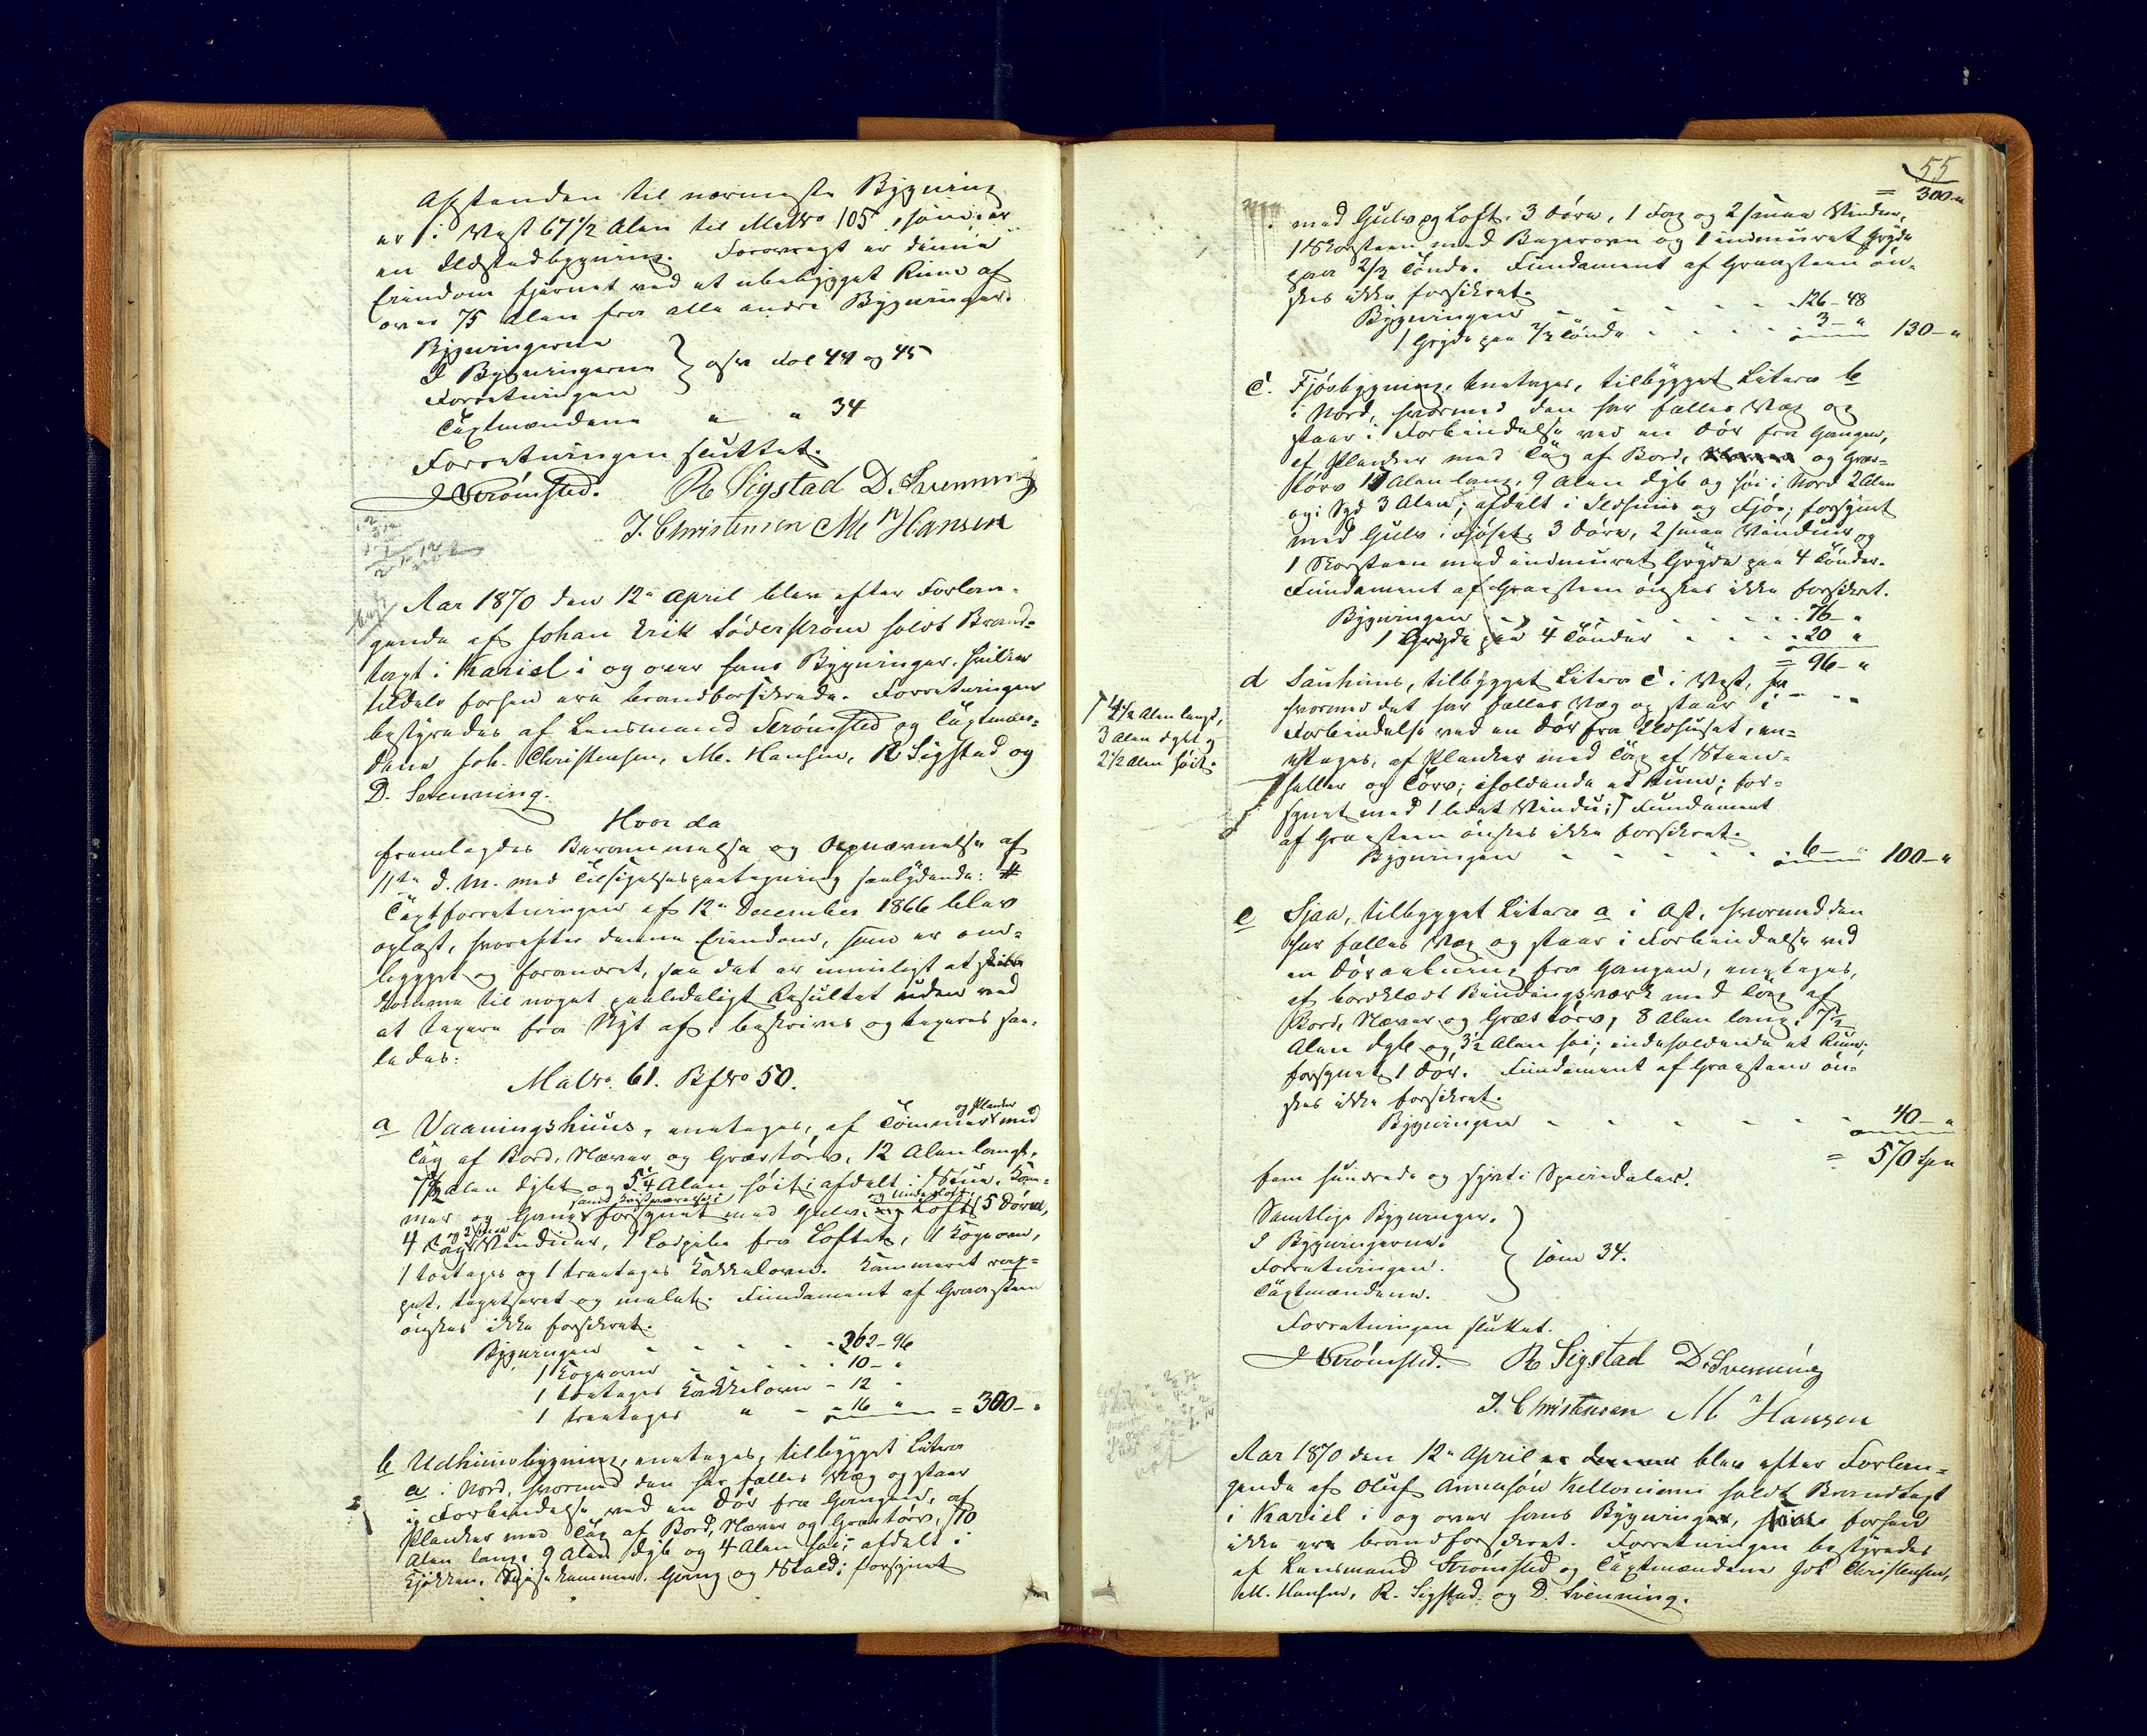 Afstanden til nærmeste Bygning
er i Vest 67 1/2 Alen til Matr 105, som er
en Ildstedbygning. Forøvrigt er denne
Eiendom fjernet ved et ubebygget Rum af
over 75 Alen fra alle andre Bygninger.
Bygningerne
I Bygningerne } osv Fol 44 og 45
Forretningen
Taxtmændene " " 34
Forretningen sluttet.
Strømsted. R Sigstad D. Svenning
J. Christensen M. Hansen
Aar 1870 den 12te April blev efter Forlan-
gende af Johan Erik Söderström holdt Brand-
taxt i Kariel i og over hans Bygninger, hvilke
tildels forhen ere brandforsikrede. Forretningen
bestyredes af Lensmand Strømsted og Taxtmæn-
dene Joh. Christensen, M. Hansen, R Sigstad og
D. Svenning.
Hvor da
fremlagdes Berammelse og Opnævnelse af
11te d. M. med Tilsigelsespaategning saalydende: #
Taxtforretningen af 12te December 1866 blev
oplæst, hvorefter denne Eiendom, som er om-
bygget og forandret, saa det er umuligt at
komme til noget paalideligt Resultat uden ved
at taxere fra Nyt af, beskrives og taxeres saa-
ledes:
Matr. 61. Bfr 50.
a Vaaningshuus, eenetages, af Tømmer og Planker med
Tag af Bord, Næver og Græstørv, 12 Alen langt,
7 1/2 Alen dybt og 5 1/4 Alen høit; afdelt i Stue, Kam-
mer og Gang samt Kvistværelse; forsynet med Gulv og Loft, 5 Døre,
4 Fags og 2 smaa Vinduer, 1 fra Loftet, 1 Kogeovn,
1 toetages og 1 treetages Kakkelovn. Kammeret
tapetseret og malet. Fundament af Graasteen
ønskes ikke forsikret.
Bygningen - - - - 262 - 96
1 Kogeovn - - - - 10 - "
1 toetages Kakkelovn - 12 "
1 treetages " - 16 " = 300 - "
b Udhuusbygning, eenetages, tilbygget Litera
a i Nord, hvormed den har fælles Væg og staar
i Forbindelse ved en Dør fra Gangen, af
Planker med Tag af Bord, Næver og Græstørv, 10
Alen lang, 9 Alen dyb og 4 Alen høi; afdelt i
Kjøkken, Spisekammer, Gang og Stald; forsynet
55
= 300 - "
med Gulv og Loft, 3 Døre, 1 Fag og 2 smaa Vinduer,
1 Skorsteen med Bagerovn og 1 indmuret Gryde
paa 2/3 Tønde. Fundament af Graasteen øn-
skes ikke forsikret.
Bygningen - - - - 126 - 48
1 Gryde paa 2/3 Tønde - - - 3 - " 130 - "
c. Fjøsbygning, eenetages, tilbygget Litera b
i Nord, hvormed den har fælles Væg og
staar i Forbindelse ved en Dør fra Gangen,
af Planker med Tag af Bord, og Græs-
tørv 11 Alen lang, 9 Alen dyb og høi i Nord 2 Alen
og i Syd 3 Alen; afdelt i Ildhuus og Fjøs; forsynet
med Gulv i Fjøset, 3 Døre, 2 smaa Vinduer og
1 Skorsteen med indmuret Gryde paa 4 Tønder.
Fundament af Graasteen ønskes ikke forsikret.
Bygningen - - - - 76 - "
1 Gryde paa 4 Tønder - - - 20 "
= 96 - "
d Sauhuus, tilbygget Litera c i Vest,
hvormed det har fælles Væg og staar i
Forbindelse ved en Dør fra Ildhuset, een-
etages, af Planker med Tag af Steen-
heller og Tørv; iholdende et Rum; for-
synet med 1 lidet Vindu; Fundament
af Graasteen ønskes ikke forsikret.
4 1/2 Alen langt,
3 Alen dybt og
2 1/2 Alen høit.
Bygningen - - - - 6 - " 100 - "
e Sjaa, tilbygget Litera a i Øst, hvormed den
har fælles Væg og staar i Forbindelse ved
en Døraabning fra Gangen, eenetages,
af bordklædt Bindingsværk med Tag af
Bord, Næver og Græstørv, 8 Alen lang, 7 1/2
Alen dyb og 3 1/2 Alen høi; indeholdende et Rum;
forsynet 1 Dør. Fundament af Graasteen øn-
skes ikke forsikret.
Bygningen - - - - - 40 - "
= 570 Spd
fem hundrede og sytti Speciedaler.
Samtlige Bygninger.
I Bygningerne. } som 34.
Forretningen.
Taxtmændene.
Forretningen sluttet.
Strømsted. R Sigstad D. Svenning
J. Christensen M Hansen
Aar 1870 den 12te April blev efter Forlan-
gende af Oluf holdt Brandtaxt
i Kariel i og over hans Bygning, forhen
ikke ere brandforsikret. Forretningen bestyredes
af Lensmand Strømsted og Taxtmændene Joh Christensen,
M. Hansen, R. Sigstad og D. Svenning.